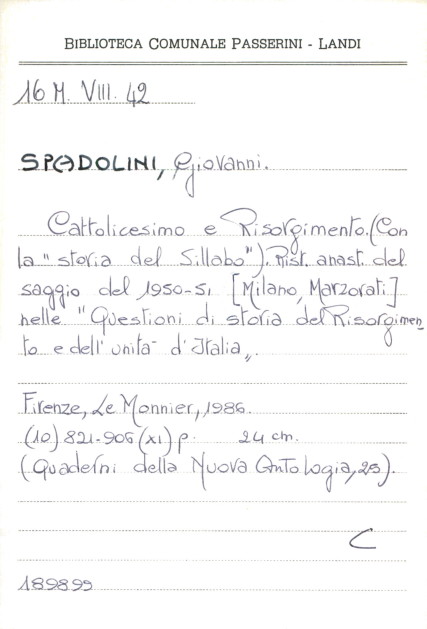 BIBLIOTECA COMUNALE PASSERINI - LANDI
16 M. VIII. 42
SPADOLINI, Giovanni.
Cattolicesimo e Risorgimento. (Con
la "storia del Sillabo"). Rist. anast. del
saggio del 1950-51 [Milano, Marzorati]
nelle "Questioni di storia del Risorgimen
to e dell'unità d'Italia„.
Firenze, Le Monnier, 1986.
(10) 821-906 (XI) p. 24 cm.
(Quaderni della Nuova Antologia, 25).
C
189899